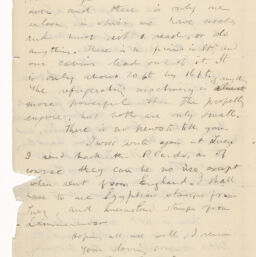 over and there is only one
saloon in which we have meals
and must sit & read, or do
anything. There is a piano in it and
our cabins lead out of it. It
is only about 20 ft by 16 ft
The refrigerating machinery is almost
more powerful than the propelling
engines, but both are only small.
There is no news to tell you.
I will write again at Suez.
I send back the P. Cards, as of
course they can be no use except
when sent from England. I shall
have to use Egyptian stamps from
Suez, and stamps from
Hoping all are well, I remain
Your loving son